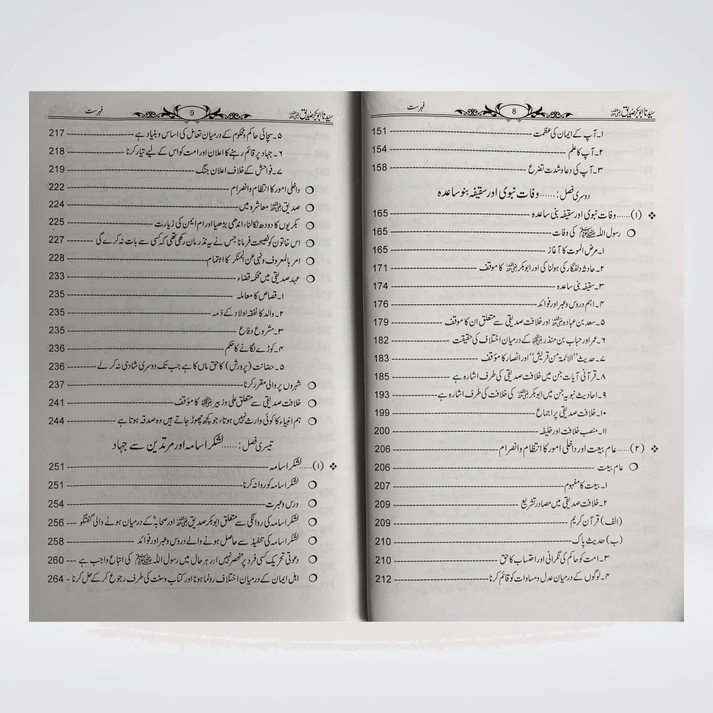 سیدنا ابوبکر صدیق رضی اللہ عنہ 8 فہرست
۱۔ آپ کے ایمان کی عظمت 151
۲۔ آپ کا علم 154
۳۔ آپ کی دعا و شدت تضرع 158
دوسری فصل:...... وفات نبوی اور سقیفہ بنو ساعدہ
❖ (۱)..... وفات نبوی اور سقیفہ بنی ساعدہ 165
○ رسول اللہ ﷺ کی وفات 165
۱۔ مرض الموت کا آغاز 165
۲۔ حادثہ دلفگار کی ہولناکی اور ابوبکر رضی اللہ عنہ کا موقف 171
۳۔ سقیفہ بنی ساعدہ 174
۴۔ اہم دروس و عبر اور فوائد 176
۵۔ سعد بن عبادہ رضی اللہ عنہ اور خلافت صدیقی سے متعلق ان کا موقف 179
۶۔ عمر اور حباب بن منذر رضی اللہ عنہما کے درمیان اختلاف کی حقیقت 182
۷۔ حدیث ’’الائمة من قریش‘‘ اور انصار کا مؤقف 183
۸۔ قرآنی آیات جن میں خلافت صدیقی کی طرف اشارہ ہے 185
۹۔ احادیث نبویہ جن میں ابوبکر رضی اللہ عنہ کی خلافت کی طرف اشارہ ہے 193
۱۰۔ خلافت صدیقی پر اجماع 199
۱۱۔ منصب خلافت اور خلیفہ 200
❖ (۲)..... عام بیعت اور داخلی امور کا انتظام وانصرام 206
○ عام بیعت 206
۱۔ بیعت کا مفہوم 207
۲۔ خلافت صدیقی میں مصادر تشریع 209
(الف) قرآن کریم 209
(ب) حدیث پاک 210
۳۔ امت کو حاکم کی نگرانی اور احتساب کا حق 210
۴۔ لوگوں کے درمیان عدل و مساوات کو قائم کرنا 212
سیدنا ابوبکر صدیق رضی اللہ عنہ 9 فہرست
۵۔ سچائی حاکم و محکوم کے درمیان تعامل کی اساس و بنیاد ہے 217
۶۔ جہاد پر قائم رہنے کا اعلان اور امت کو اس کے لیے تیار کرنا 218
۷۔ فواحش کے خلاف اعلان جنگ 219
○ داخلی امور کا انتظام وانصرام 222
○ صدیق رضی اللہ عنہ معاشرہ میں 224
○ بکریوں کا دودھ نکالنا، اندھی بڑھیا اور ام ایمن کی زیارت 225
○ اس خاتون کو نصیحت فرمانا جس نے یہ نذر مان رکھی تھی کہ کسی سے بات نہ کرے گی 227
○ امر بالمعروف و نہی عن المنکر کا اہتمام 228
○ عہد صدیقی میں محکمہ قضاء 233
۱۔ قصاص کا معاملہ 235
۲۔ والد کا نفقہ اولاد کے ذمہ 235
۳۔ مشروع دفاع 235
۴۔ کوڑے لگانے کا حکم 236
۵۔ حضانت (پرورش) کا حق ماں کا ہے جب تک دوسری شادی نہ کر لے 236
○ شہروں پر والی مقرر کرنا 237
○ خلافت صدیقی سے متعلق علی و زبیر رضی اللہ عنہما کا مؤقف 241
○ ہم انبیاء کا کوئی وارث نہیں ہوتا، جو کچھ چھوڑ جاتے ہیں وہ صدقہ ہوتا ہے 244
تیسری فصل:...... لشکر اسامہ اور مرتدین سے جہاد
❖ (۱)..... لشکر اسامہ 251
○ لشکر اسامہ کو روانہ کرنا 251
○ درس وعبرت 254
○ لشکر اسامہ کی روانگی سے متعلق ابوبکر صدیق رضی اللہ عنہ اور صحابہؓ کے درمیان ہونے والی گفتگو 256
○ لشکر اسامہ کی تنفیذ سے حاصل ہونے والے دروس وعبر اور فوائد 258
○ دعوتی تحریک کسی فرد پر منحصر نہیں اور ہر حال میں رسول اللہ ﷺ کی اتباع واجب ہے 260
○ اہل ایمان کے درمیان اختلاف رونما ہونا اور کتاب وسنت کی طرف رجوع کر کے حل کرنا 264